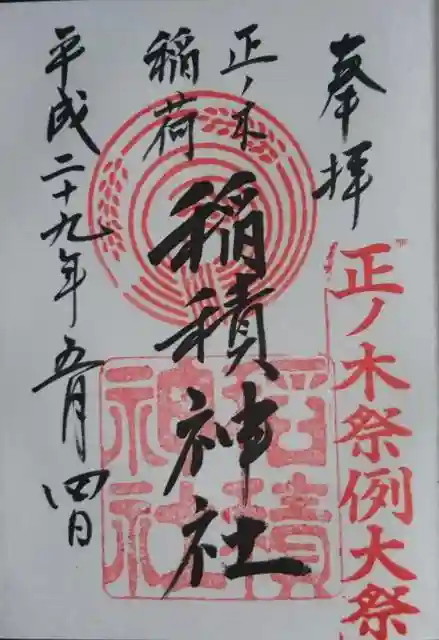 奉拝
正ノ木祭例大祭
正ノ木
稲荷
稲積神社
稲積
神社
平成二十九年五月四日